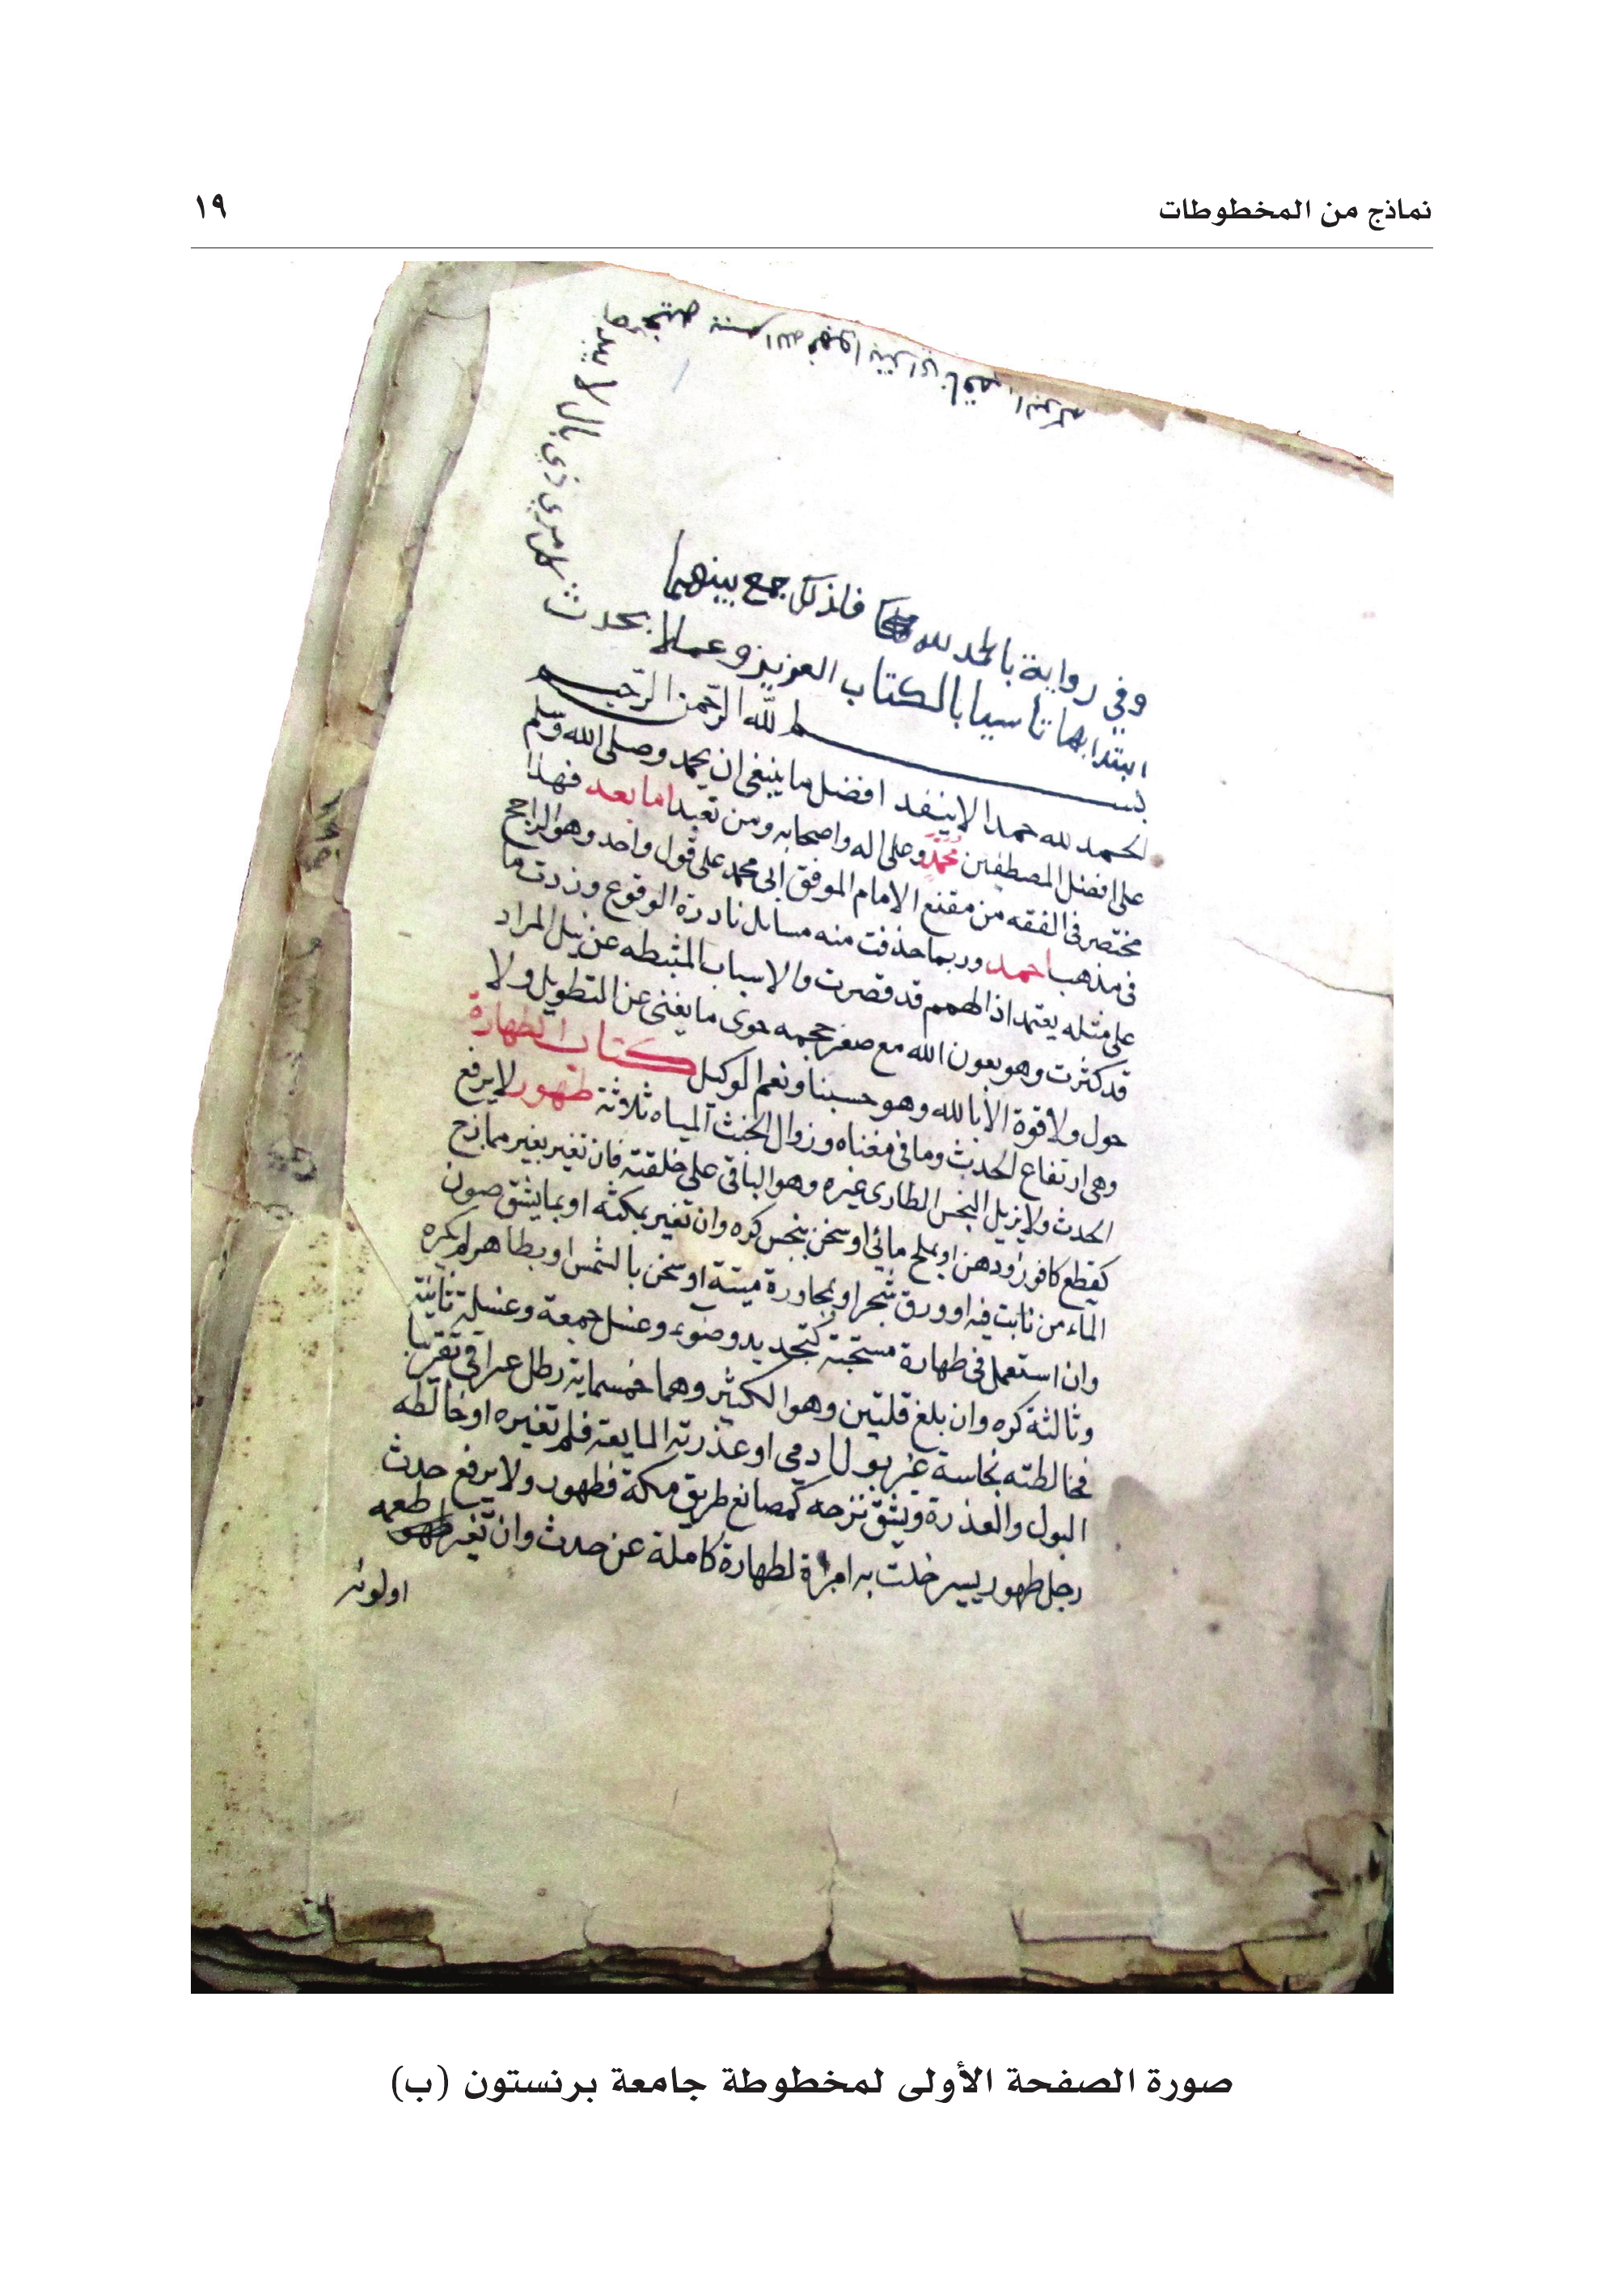 نماذج من المخطوطات
١٩
كل امري ذي بال لا يبدؤ
فيه ببسم الله فهو ابتر اي ناقص البركه
وفي رواية بالحمد لله فلذلك جمع بينهما
ابتدا بهما تاسيا بالكتاب العزيز وعملا بحدث
بسم الله الرحمن الرحيم
الحمد لله حمدا لا ينفد افضل ما ينبغي ان يحمد وصلى الله وسلم
على افضل المصطفين محمد وعلى اله واصحابه ومن تعبد اما بعد فهذا
مختصر في الفقه من مقنع الامام الموفق ابي محمد على قول واحد وهو الراجح
في مذهب احمد وربما حذفت منه مسائل نادرة الوقوع وزدت ما
على مثله يعتمد اذ الهمم قد قصرت والاسباب المثبطه عن نيل المراد
قد كثرت وهو بعون الله مع صغر حجمه حوى ما يغني عن التطويل ولا
حول ولا قوة الا بالله وهو حسبنا ونعم الوكيل كتاب الطهارة
وهي ارتفاع الحدث وما في معناه وزوال الخبث المياه ثلاثة طهور لا يرفع
الحدث ولا يزيل النجس الطاري غيره وهو الباقي على خلقته فان تغير بغير ممازج
كقطع كافور ودهن او بملح مائي او سخن بنجس كره وان تغير بمكثه او بما يشق صون
الماء من نابت فيه او ورق شجر او بمجاورة ميتة او سخن بالشمس او بطاهر لم يكره
وان استعمل في طهارة مستحبة كتجديد وضوء وغسل جمعة وغسلة ثانية
وثالثة كره وان بلغ قلتين وهو الكثير وهما خمسماية رطل عراقي تقريبا
فخالطته نجاسة غير بول ادمي او عذرته المايعة فلم تغيره او خالطه
البول والعذرة ويشق نزحه كمصانع طريق مكة فطهور ولا يرفع حدث
رجل طهور يسير خلت به امراة لطهارة كاملة عن حدث وان تغير طعمه
او لونه
صورة الصفحة الأولى لمخطوطة جامعة برنستون (ب)